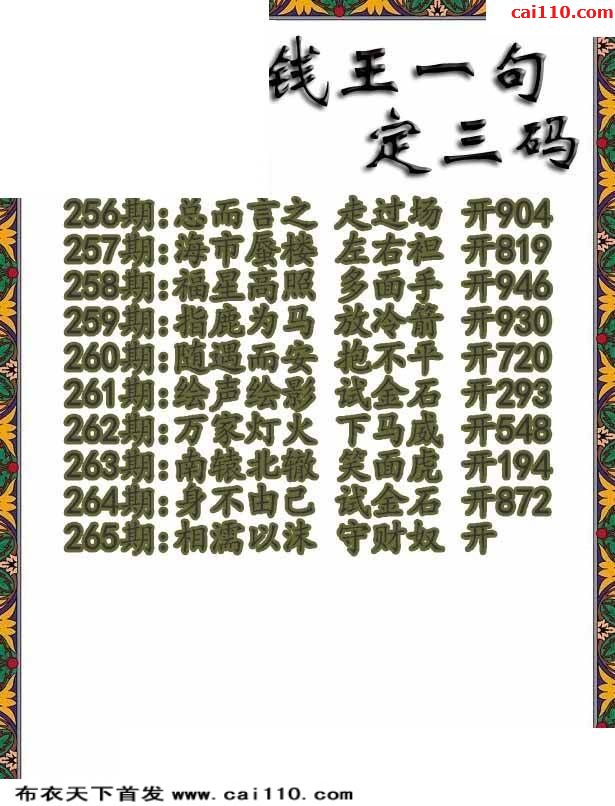 cai110.com
钱王一句
定三码
256期:总而言之 走过场 开904
257期:海市蜃楼 左右袒 开819
258期:福星高照 多面手 开946
259期:指鹿为马 放冷箭 开930
260期:随遇而安 抱不平 开720
261期:绘声绘影 试金石 开293
262期:万家灯火 下马威 开548
263期:南辕北辙 笑面虎 开194
264期:身不由己 试金石 开872
265期:相濡以沫 守财奴 开
布衣天下首发 www.cai110.com